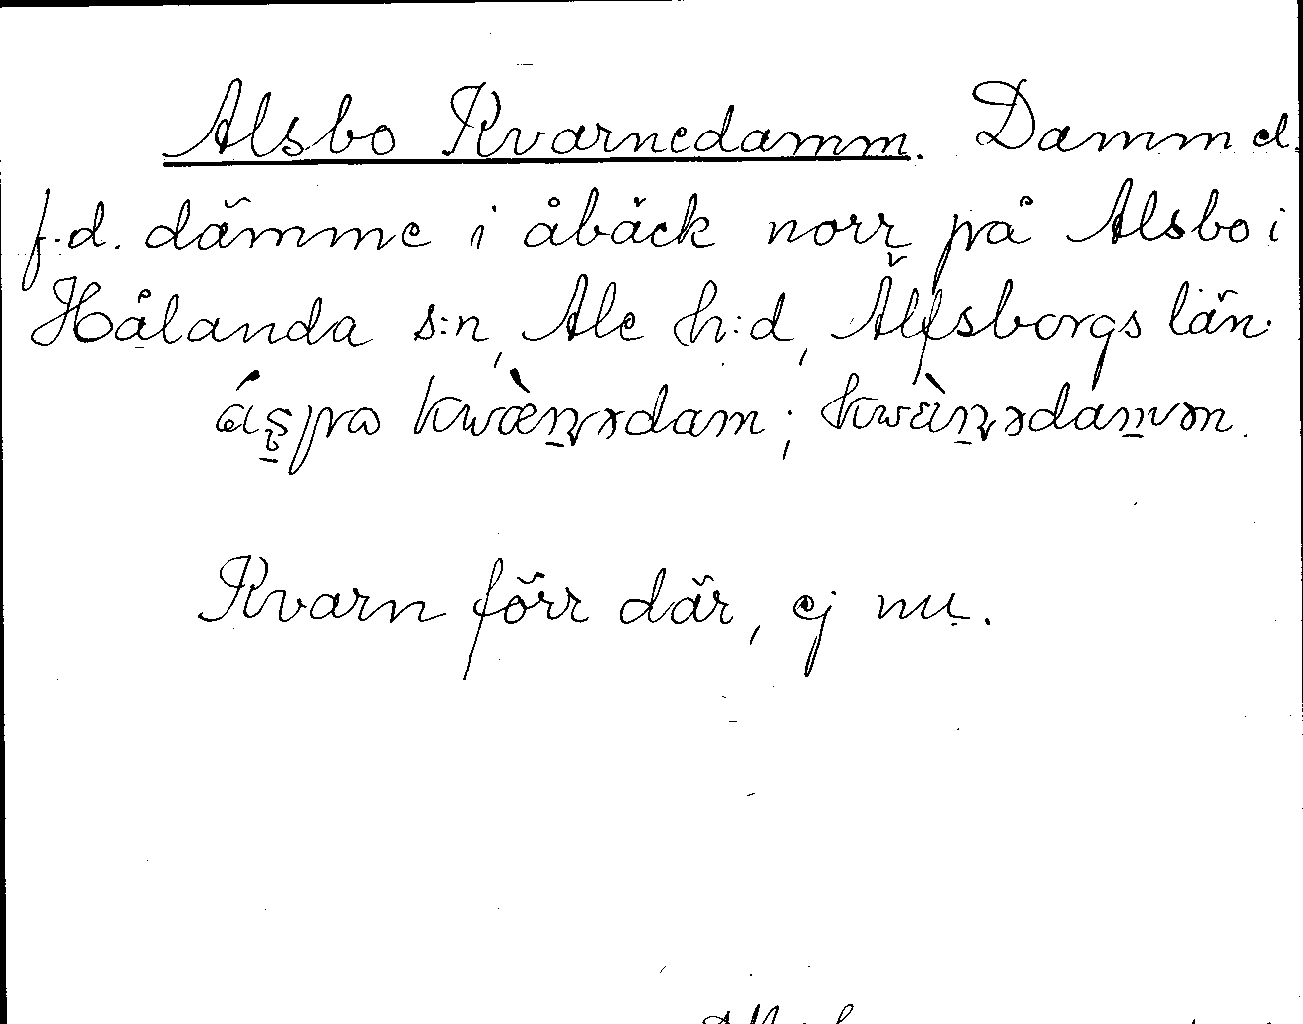 Alsbo Kvarnedamm. Damm el.
f.d. dämme i åbäck norr på Alsbo i
Hålanda s:n, Ale h:d, Älfsborgs län.
Kvarn förr där, ej nu.